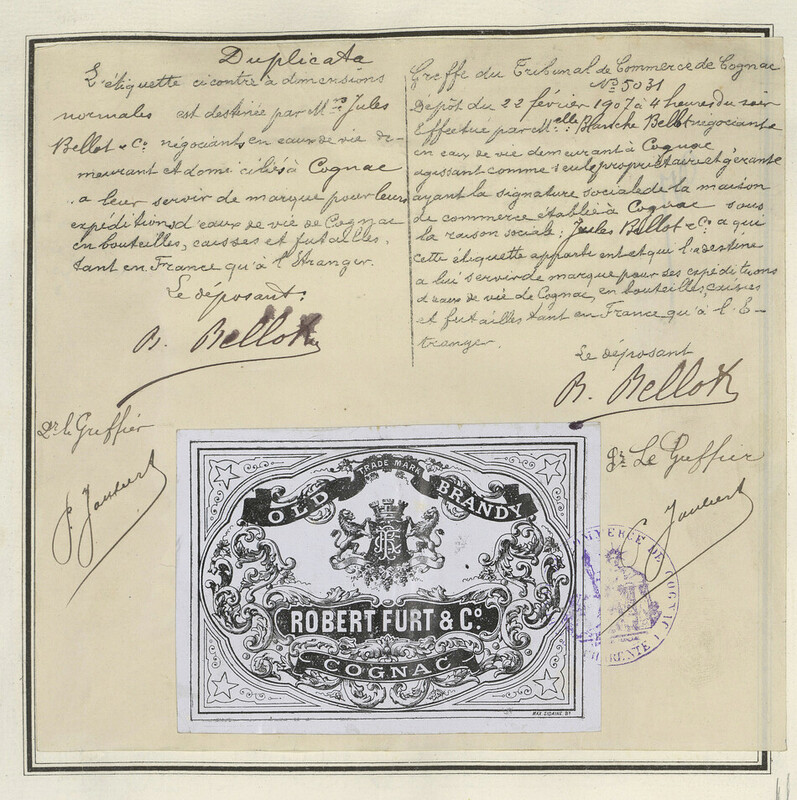 Duplicata
L'étiquette ci contre à dimensions
normales est destinée par Mrs Jules
Bellot & Co négociants en eaux de vie de-
meurant et domiciliés à Cognac
a leur servir de marque pour leurs
expéditions d'eaux de vie de Cognac
en bouteilles, caisses et futailles,
tant en France qu'à l'Etranger.
Le déposant:
B. Bellot
Pr le Greffier
J. Jaubert
Greffe du Tribunal de Commerce de Cognac
No 5031
Dépôt du 22 février 1907 à 4 heures du soir
Effectué par Melle Blanche Bellot négociante
en eaux de vie demeurant à Cognac
agissant comme seule propriétaire et gérante
ayant la signature sociale de la maison
de commerce établie à Cognac sous
la raison sociale: Jules Bellot & Co a qui
cette étiquette appartient et qui l'a destine
a lui servir de marque pour ses expéditions
d'eaux de vie de Cognac, en bouteilles, caisses
et futailles tant en France qu'à l'E-
tranger.
Le déposant
B. Bellot
Pr Le Greffier
Jaubert
TRADE MARK
OLD BRANDY
ROBERT FURT & Co.
COGNAC
COMMERCE DE COGNAC
CHARENTE